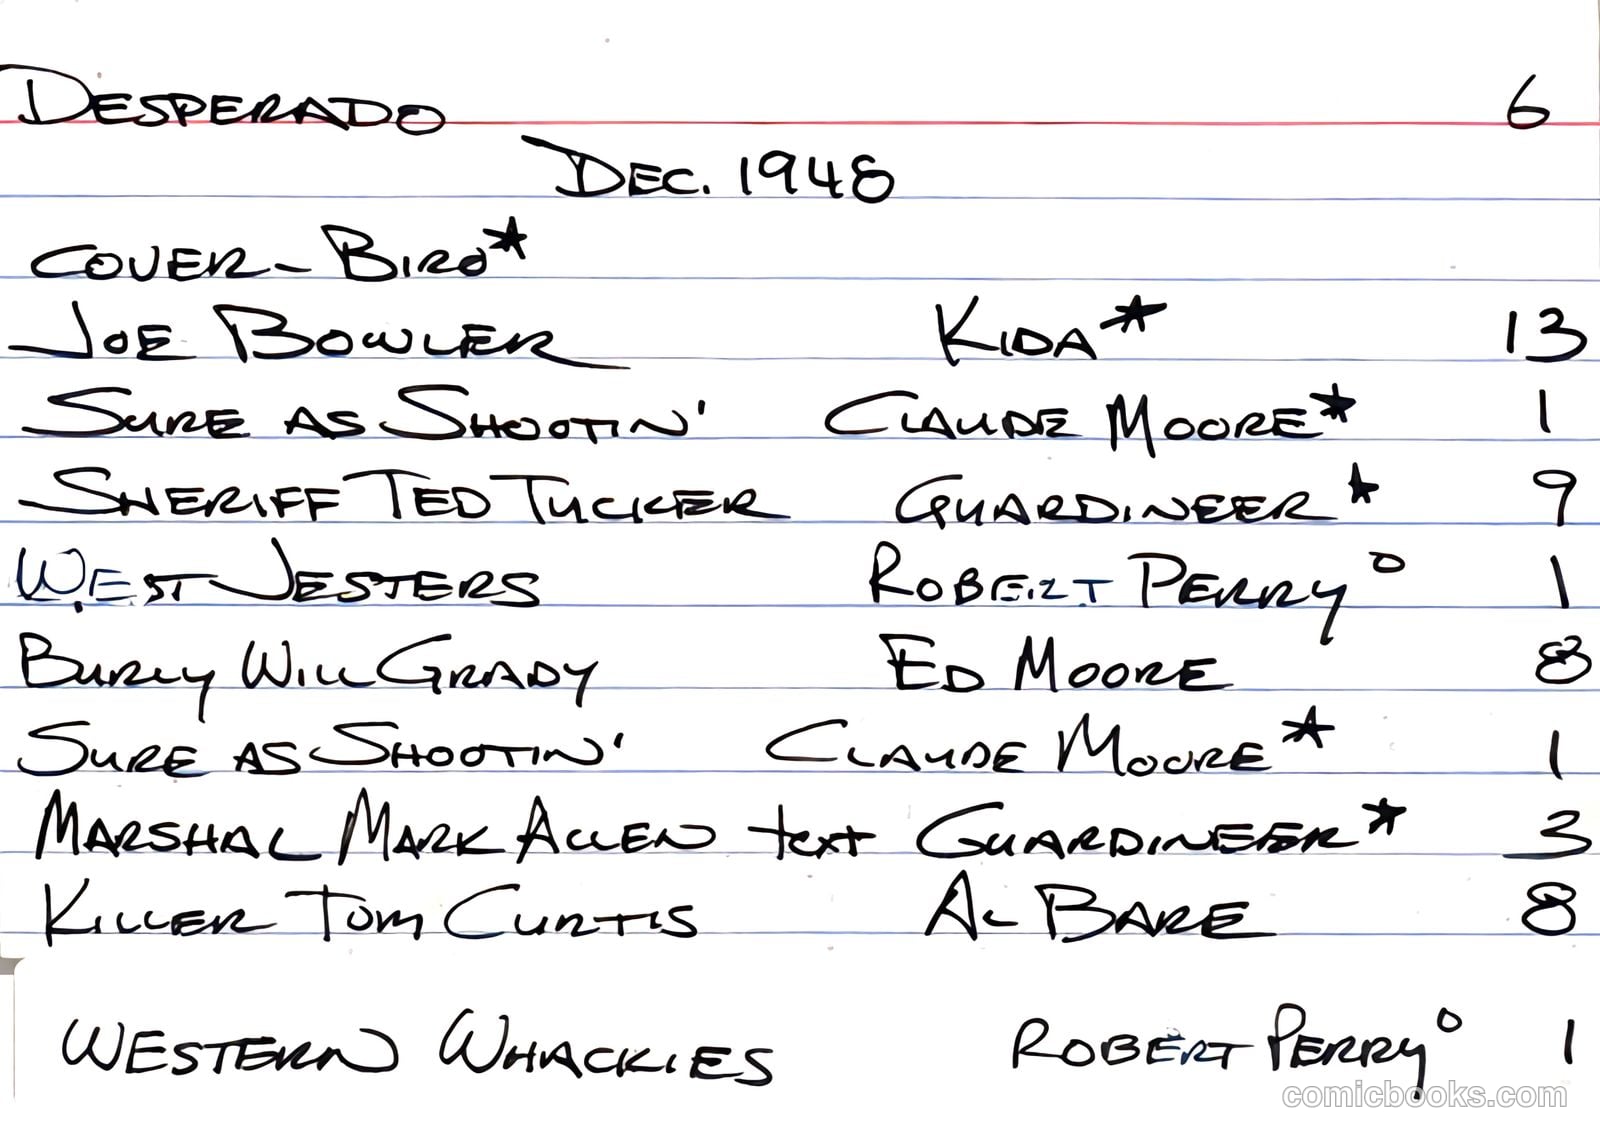 DESPERADO 6
DEC. 1948
COVER - BIRO*
JOE BOWLER KIDA* 13
SURE AS SHOOTIN' CLAUDE MOORE* 1
SHERIFF TED TUCKER GUARDINEER* 9
WEST JESTERS ROBERT PERRY° 1
BURLY WILL GRADY ED MOORE 8
SURE AS SHOOTIN' CLAUDE MOORE* 1
MARSHAL MARK ALLEN text GUARDINEER* 3
KILLER TOM CURTIS AL BARE 8
WESTERN WHACKIES ROBERT PERRY° 1
comicbooks.com